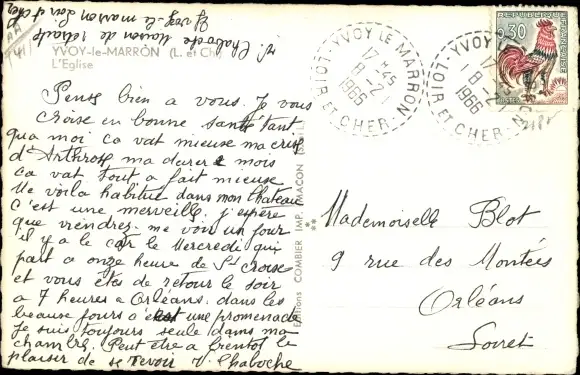 Mr Chaboche Maison de retraite
Yvoy-le marron Loir et cher
YVOY-le-MARRON (L. et Ch)
L'Eglise
Pense bien a vous. Je vous
croise en bonne santé tant
qua moi ca vat mieuse ma crise
d'Anthrose ma durer 2 mois
ca vat tout a fait mieuse
Me voila habituer dans mon Chateau
C'est une merveille. J'espere
que viendrez me voir un jour
il y a le car le Mercredi qui
part a onze heure de St croise
et vous êtes de retour le soir
a 7 heures a Orléans. dans les
beause jours c'est une promenade
Je suis toujours seule dans ma
chambre. Peut etre a bientot le
plaisir de se revoir V. Chaboche
Editions COMBIER IMP. MACON (S.-et-L.)
YVOY LE MARRON
17 H 45
18 -12
1966
LOIR ET CHER
YVOY LE MARRON
17 H 45
18 -12
1966
LOIR ET CHER
REPUBLIQUE FRANCAISE
0,30
POSTES
Mademoiselle Blot
9 rue des Montées
Orléans
Loiret